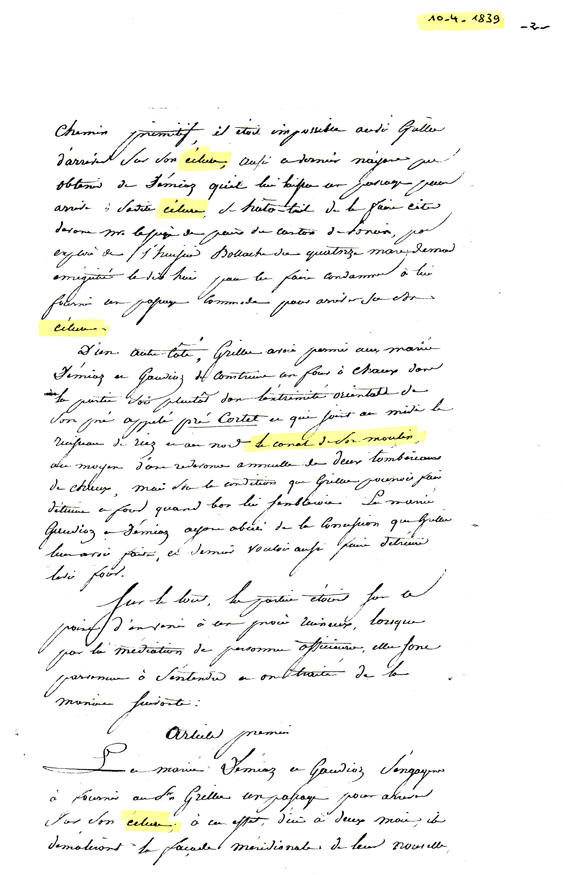 10-4-1839 -2-
Chemin primitif, il étoit impossible audit Grillu
d'arriver sur son écluse, aussi ce dernier n'ayant pu
obtenir de Démiaz qu'il lui laissa un passage pour
arriver à sadite écluse, se hata-t-il de le faire citer
devant mr le juge de paix du canton de
exploit de l'huissier Bollache du quatorze mars dernier
enregistré le dix huit pour le faire condamner à lui
fournir un passage commode pour arriver sur son
écluse.
D'un autre côté, Grillu avoit permis aux mariés
Démiaz et Gaudioz de construire un four à chaux dans
la partie soit plutôt dans l'extrémité orientale de
son pré appelé pré Cortet et qui joint au midi le
ruisseau de riez et au nord le canal de son moulin,
au moyen d'une redevance annuelle de deux tombereaux
de chaux, mais sous la condition que Grillu pourroit faire
détruire ce four quand bon lui sembleroit. Les mariés
Gaudioz et Démiaz ayant abusé de la concession que Grillu
leur avoit faite, ce dernier vouloit aussi faire détruire
ledit four.
Sur le tout, les parties étoient sur le
point d'en venir à un procès ruineux, lorsque
par la médiation de personnes officieuses, elles sont
parvenues à s'entendre et ont traité de la
manière suivante:
Article premier
Les mariés Démiaz et Gaudioz s'engagent
à fournir au Sr Grillu un passage pour arriver
sur son écluse, à cet effet d'ici à deux mois, ils
démoliront la façade méridionale de leur nouvelle